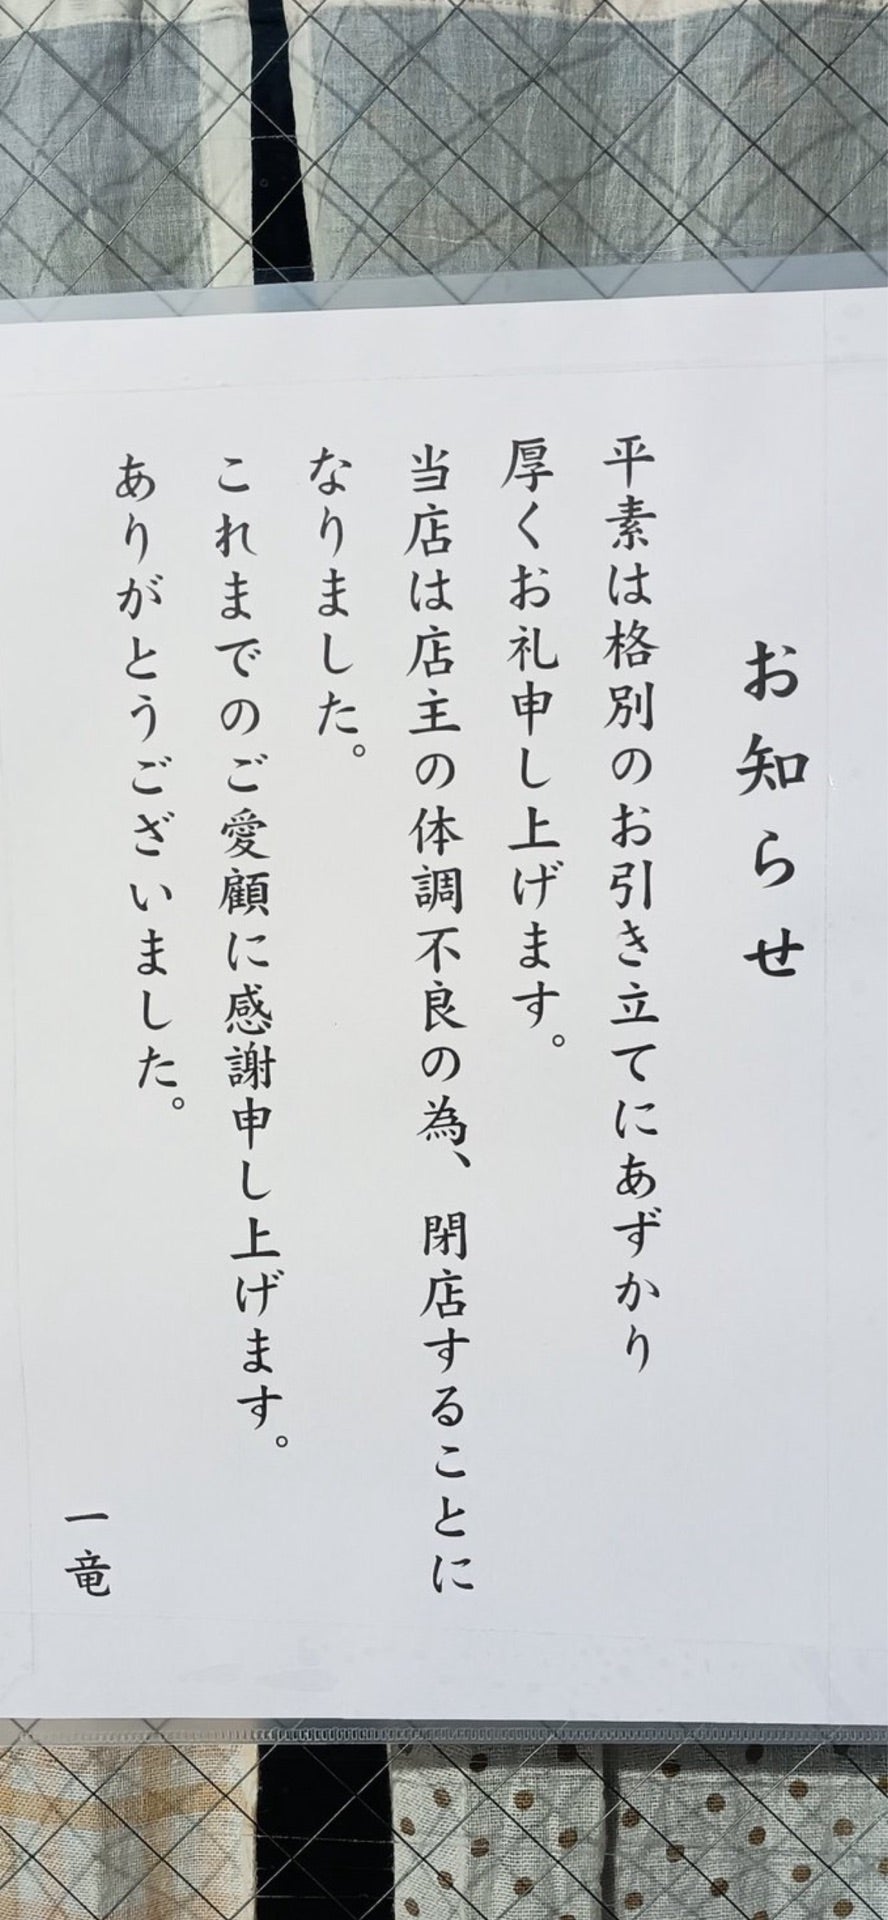 お知らせ
平素は格別のお引き立てにあずかり
厚くお礼申し上げます。
当店は店主の体調不良の為、閉店することに
なりました。
これまでのご愛顧に感謝申し上げます。
ありがとうございました。
一竜